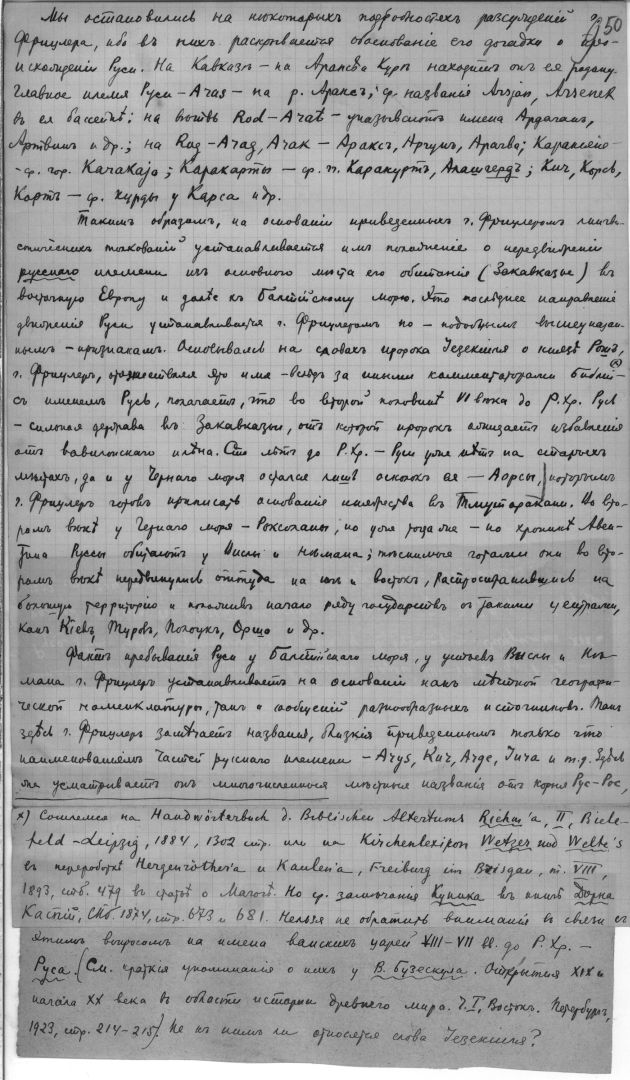 50
Мы остановились на некоторыхъ подробностяхъ разсужденій г.
Фрицлера, ибо въ нихъ раскрывается обоснованіе его догадки о про-
исхожденіи Руси. На Кавказѣ – на Араксѣ и Курѣ находитъ онъ ее родину.
Главное племя Руси – Aras – на р. Араксъ; ср. названія Arsjan, Arsenek
въ ея бассейнѣ; на вѣтвь Rod – Arat – указываютъ имена Ардаганъ,
Артвинъ и др.; на Rug – Arag, Arak – Араксъ, Арчинъ, Арагва;
– ср. гор. Качакаја; Каракарты – ср. п. Каракуртъ, Алашгердъ; Кич, Корсь,
Картъ – ср. курды у Карса и др.
Такимъ образомъ, на основаніи приведенныхъ г. Фрицлеромъ лингви-
стическихъ толкованій устанавливается имъ положеніе о передвиженіи
русского племени изъ основного мѣста его обитанія (Закавказье) въ
восточную Европу и далѣе къ Балтійскому морю. Это послѣднее направленіе
движенія Руси устанавливается г. Фрицлеромъ по – подобнымъ вышеуказан-
нымъ – признакамъ. Основываясь на словахъ пророка Іезекіиля о князѣ Рошъ,
г. Фрицлеръ, отожествляя это имя – вслѣдъ за иными комментаторами Библіи x)
– съ именемъ Русь, полагаетъ, что во второй половинѣ VI вѣка до Р. Хр. Русь
– сильная держава въ Закавказьѣ, отъ которой пророкъ ожидаетъ избавленія
отъ вавилонскаго плѣна. Сто лѣтъ до Р. Хр. – Руси уже нѣтъ на старыхъ
мѣстахъ, да и у Чернаго моря остался лишь осколокъ ея – Аорсы, которымъ
г. Фрицлеръ готовъ приписать основаніе княжества въ Тмутаракани. Во вто-
ромъ вѣкѣ у Чернаго моря – Роксоланы; но уже тогда же – по хроникѣ Авен-
тина Руссы обитаютъ у Вислы и Нѣмана; тѣснимые готами они во вто-
ромъ вѣкѣ передвинулись оттуда на югъ и востокъ, распространившись на
большую территорію и положивъ начало ряду государствъ съ такими центрами,
какъ Кіевъ, Туровъ, Полоцкъ, Орша и др.
Фактъ пребыванія Руси у Балтійскаго моря, у устьевъ Вислы и Нѣ-
мана г. Фрицлеръ устанавливаетъ на основаніи какъ мѣстной географи-
ческой номенклатуры, такъ и сообщеній разнообразныхъ источниковъ. Такъ
здѣсь г. Фрицлеръ замѣчаетъ названія, близкія приведеннымъ только что
наименованіямъ частей русского племени – Arys, Кич, Arge, Jura и т.д. Здѣсь
же усматриваетъ онъ многочисленныя мѣстныя названія отъ корня Рус-Рос,
x) Сошлемся на Handwörterbuch d. Biblischen Altertums Riehm'a, II, Biele-
feld – Leipzig, 1884, 1302 стр. или на Kirchenlexikon Wetzer und Welte's
въ переработкѣ Hergenröther'a и Kaulen'a, Freiburg im Breisgau, т. VIII,
1893, стб. 479 въ статьѣ о Магогѣ. Но ср. замѣчанія Куника въ книгѣ Дорна
Каспій, СПб. 1874, стр. 673 и 681. Нельзя не обратить вниманія въ связи съ
этимъ вопросомъ на имена ванскихъ царей VIII–VII вв. до Р. Хр. –
Руса. (См. краткія упоминанія о нихъ у В. Бузескула. Открытія XIX и
начала XX века въ области исторіи древнего мира. Ч. I, Востокъ. Петербургъ,
1923, стр. 214–215). Не къ нимъ ли относятся слова Іезекіиля?